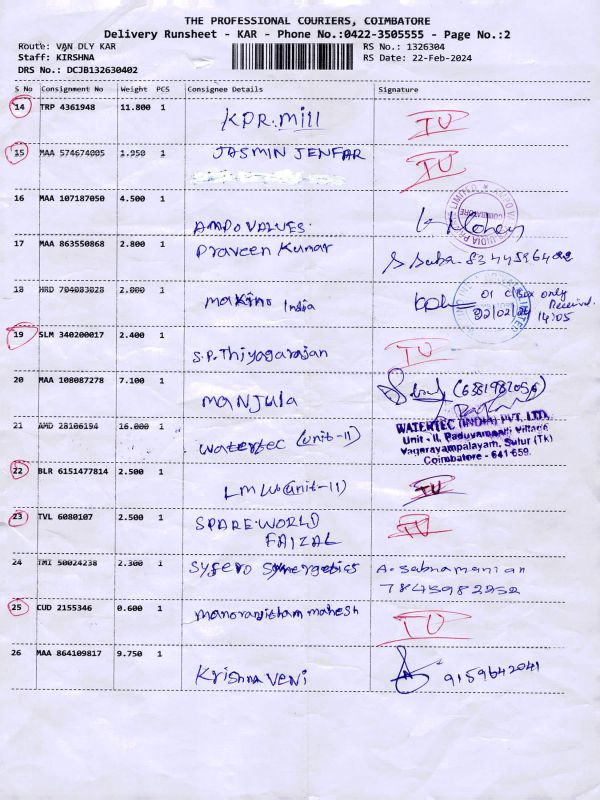 THE PROFESSIONAL COURIERS, COIMBATORE
Delivery Runsheet - KAR - Phone No.:0422-3505555 - Page No.:2
Route: VAN DLY KAR RS No.: 1326304
Staff: KIRSHNA RS Date: 22-Feb-2024
DRS No.: DCJB132630402
S No Consignment No Weight PCS Consignee Details Signature
14 TRP 4361948 11.800 1
KPR.Mill TU
15 MAA 574674005 1.950 1 JASMIN JENFAR TU
16 MAA 107187050 4.500 1
AMPO VALVES.
17 MAA 863550868 2.800 1 Praveen Kumar
18 HRD 704083028 2.000 1 makino India 01 only Received.
22/02/24 14:05
19 SLM 340200017 2.400 1
S.P.Thiyagarajan TU
20 MAA 108087278 7.100 1
manjula
21 AMD 28106194 16.000 1
watertec (unit-II)
WATERTEC (INDIA) PVT. LTD.
Unit - II, Paduvampalli Village
Vagarayampalayam, Sulur (Tk)
Coimbatore - 641 659.
22 BLR 6151477814 2.500 1
LMW (unit-II) TU
23 TVL 6080107 2.500 1 SPARE.WORLD TU
FAIZAL
24 IMI 50024238 2.300 1 Sygero Synergetics A. Sabnamanian
7845982252
25 CUD 2155346 0.600 1 manoranjitham mahesh TU
26 MAA 864109817 9.750 1
Krishna VENi 9159642041